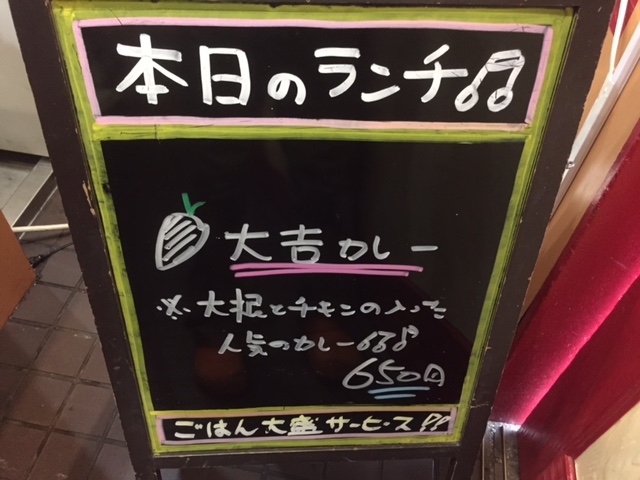 本日のランチ♫
大吉カレー
※大根とチキンの入った
人気のカレー♪♪♪
650円
ごはん大盛サービス!!